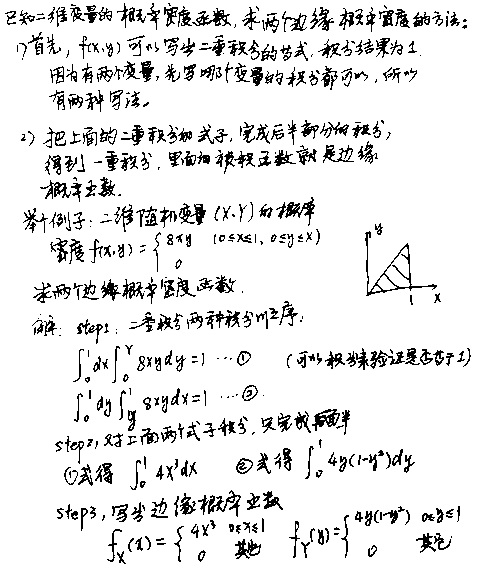 已知二维变量的概率密度函数,求两个边缘概率密度的方法:
1)首先, f(x,y) 可以写出二重积分的等式,积分结果为1.
因为有两个变量,先写哪个变量的积分都可以,所以
有两种写法。
2) 把上面的二重积分的式子,完成后半部分的积分,
得到一重积分,里面的被积函数就是边缘
概率函数.
举个例子:二维随机变量(X,Y)的概率
密度f(x,y)={8xy (0≤x≤1, 0≤y≤x)
0
求两个边缘概率密度函数.
y
x
1
解: step1: 二重积分两种积分顺序:
∫₀¹dx∫₀ˣ 8xydy=1 …① (可以积出来验证是否等于1)
∫₀¹dy∫ᵧ¹ 8xydx=1 …②
step2, 对上面两个式子积分,只完成后面半
①式得 ∫₀¹ 4x³dx ②式得 ∫₀¹ 4y(1-y²)dy
step3, 写出边缘概率函数
f_X(x)={4x³ 0≤x≤1 f_Y(y)={4y(1-y²) 0≤y≤1
0 其它 0 其它